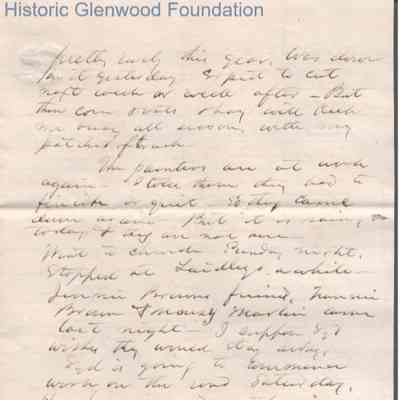 Historic Glenwood Foundation
pretty early this year, was down
on it yesterday & fit to cut
next week or week after - But
then corn oats & hay will keep
me busy all season, with my
patches
The painters are at work
again - I told them they had to
finish or quit - so they came
down again But it is rain,
today & they are not here
Went to church Sunday night,
Stopped at Laidleys awhile -
Jennie Browns friend, Fannie
Brown & Martin came
last night - I suppose Syd
wishes they would stay away.
Syd is going to commence
work on the road Saturday,